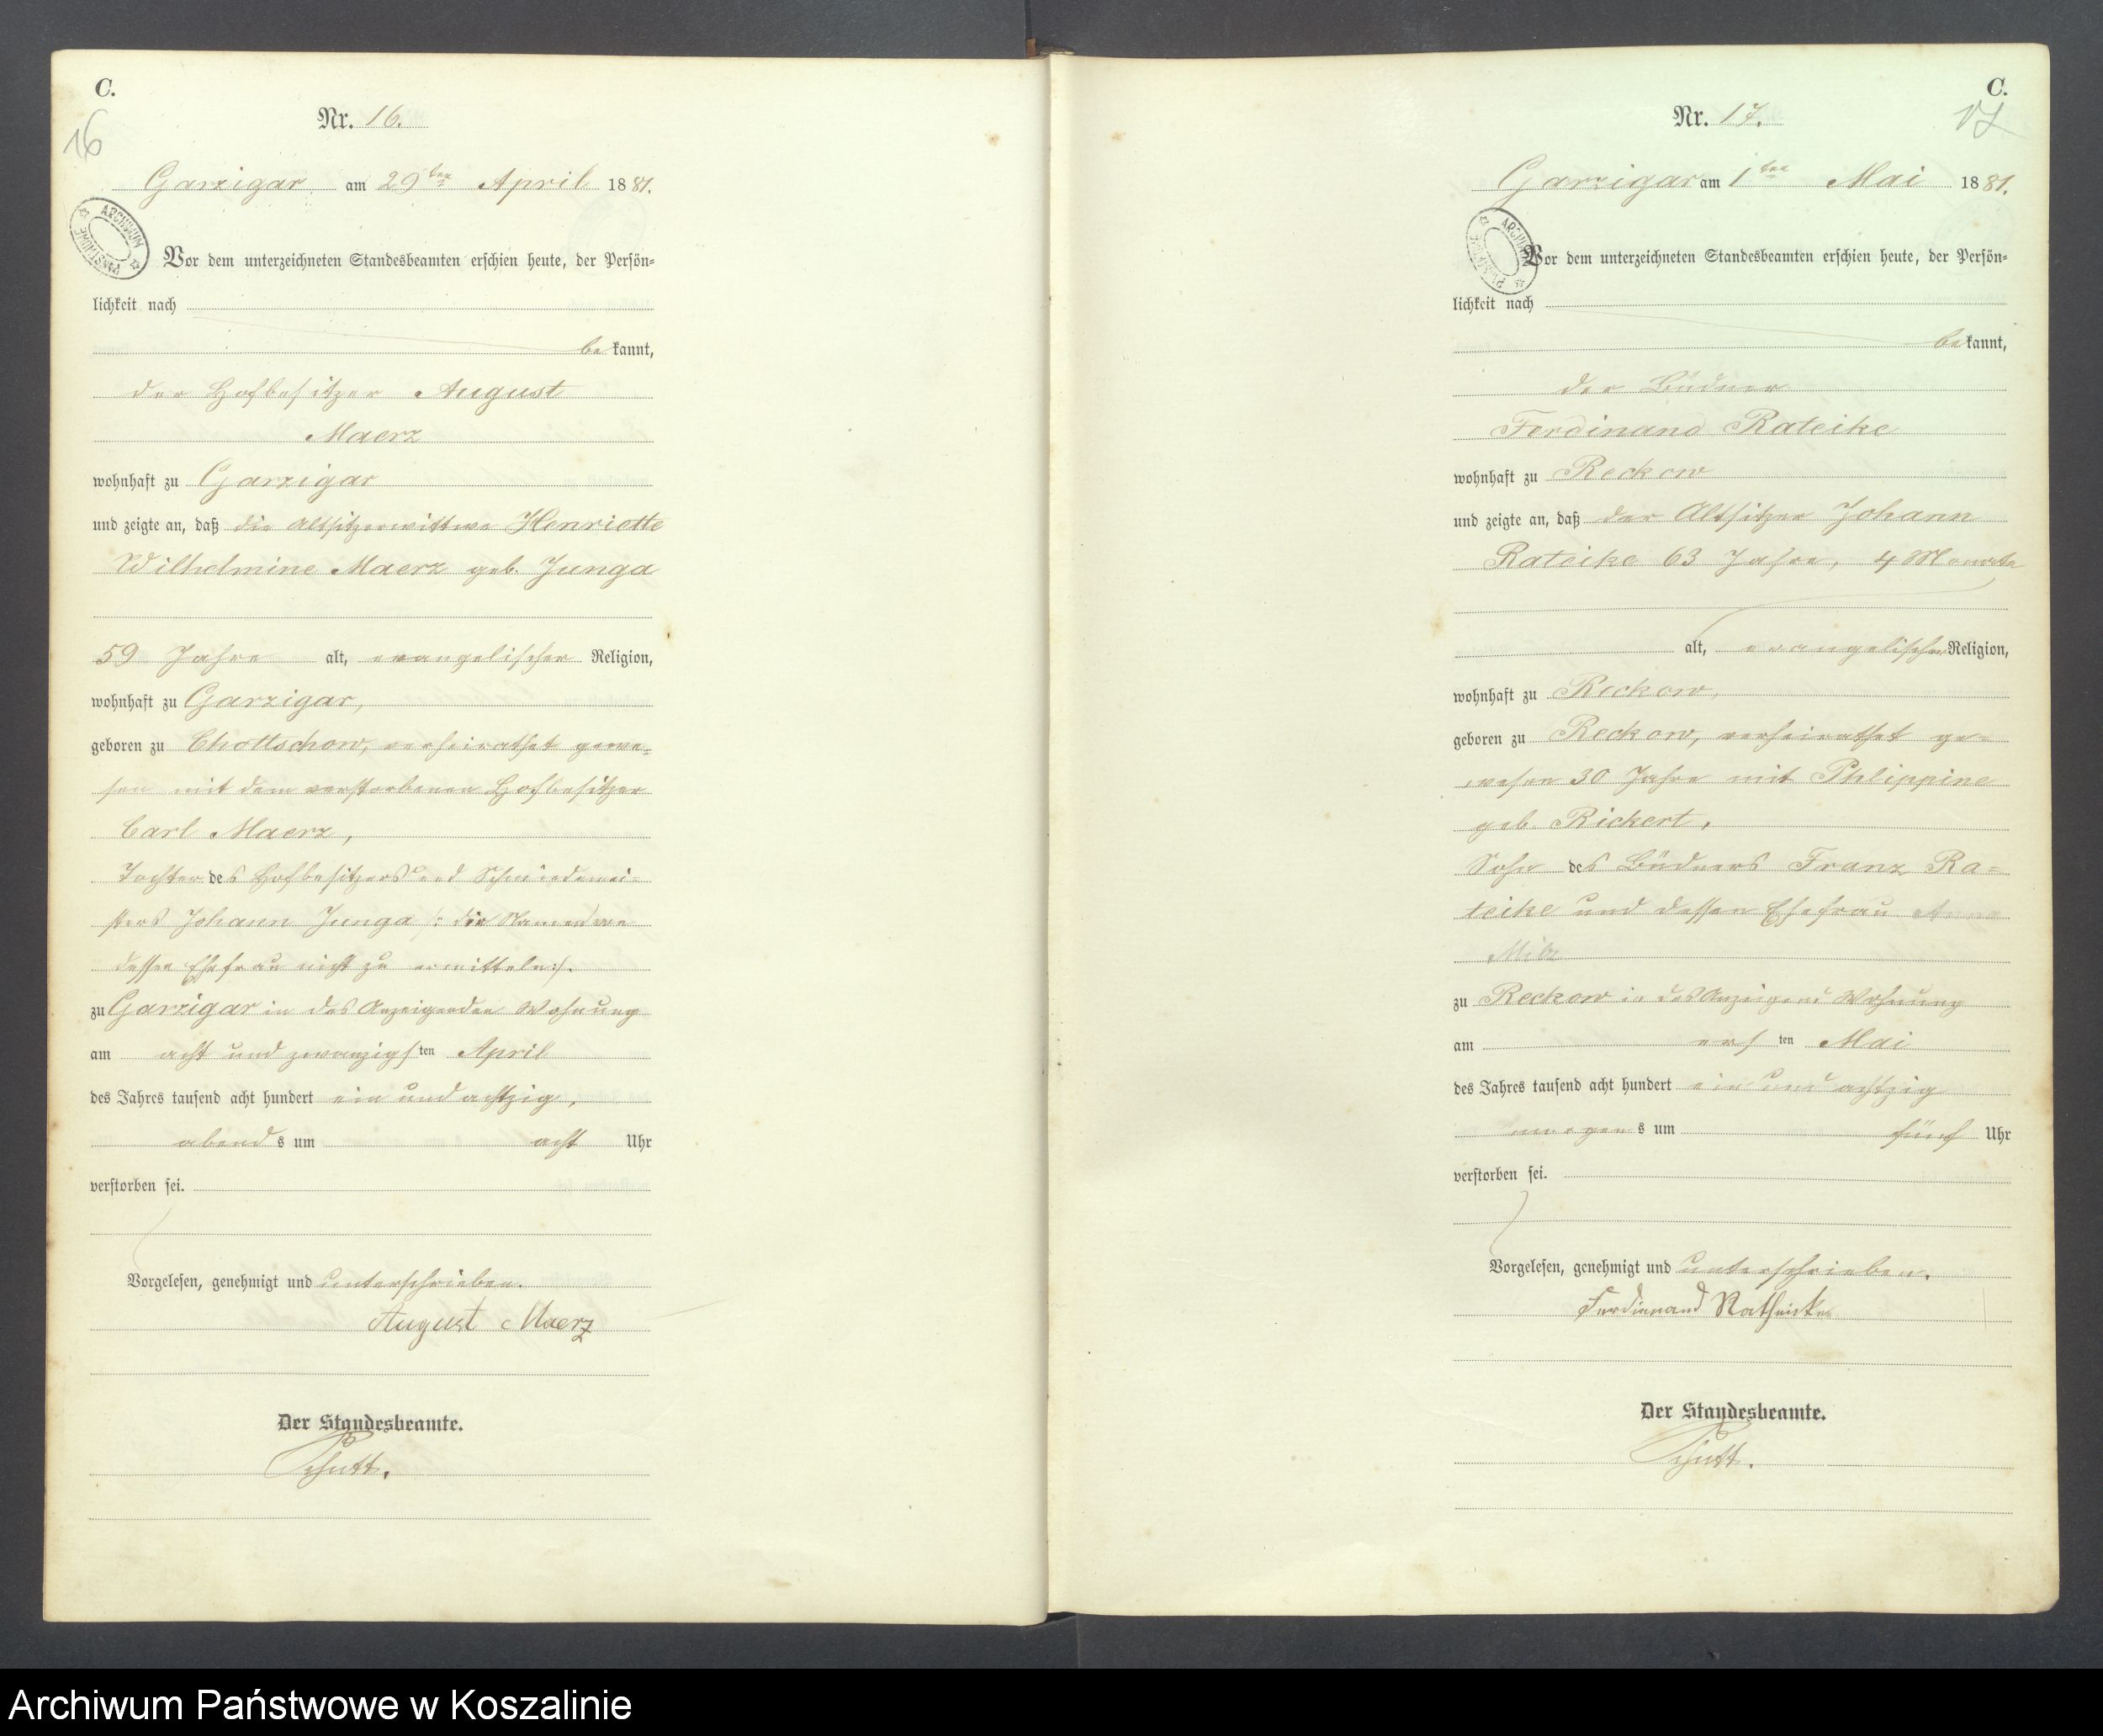 C.
Nr. 16.
16
Garzigar am 29ten April 1881.
ARCHIWUM PAŃSTWOWE
Vor dem unterzeichneten Standesbeamten erschien heute, der Persön-
lichkeit nach
bekannt,
der Hofbesitzer August
Maerz
wohnhaft zu Garzigar
und zeigte an, daß die Altsitzerwittwe Henriette
Wilhelmine Maerz geb. Junga
59 Jahre alt, evangelischer Religion,
wohnhaft zu Garzigar,
geboren zu Chottschow, verheirathet gewe-
sen mit dem verstorbenen Hofbesitzer
Carl Maerz,
Tochter des Hofbesitzers und Schmiedemei-
sters Johann Junga /: die Namen von
dessen Ehefrau nicht zu ermitteln :/.
zu Garzigar in des Anzeigenden Wohnung
am acht und zwanzigsten April
des Jahres tausend acht hundert ein und achtzig,
abends um acht Uhr
verstorben sei.
Vorgelesen, genehmigt und unterschrieben.
August Maerz
Der Standesbeamte.
Schutt.
C.
Nr. 17.
17
Garzigar am 1ten Mai 1881.
Vor dem unterzeichneten Standesbeamten erschien heute, der Persön-
lichkeit nach
bekannt,
der Büdner
Ferdinand Rateike
wohnhaft zu Reckow
und zeigte an, daß der Altsitzer Johann
Rateike 63 Jahre, 4 Monate
alt, evangelischer Religion,
wohnhaft zu Reckow,
geboren zu Reckow, verheirathet ge-
wesen 30 Jahre mit Phlippine
geb. Rickert,
Sohn des Büdners Franz Ra-
teike und dessen Ehefrau Anna
zu Reckow in des Anzeigend Wohnung
am ersten Mai
des Jahres tausend acht hundert ein und achtzig
morgens um fünf Uhr
verstorben sei.
Vorgelesen, genehmigt und unterschrieben.
Ferdinand Ratheike
Der Standesbeamte.
Schutt.
Archiwum Państwowe w Koszalinie